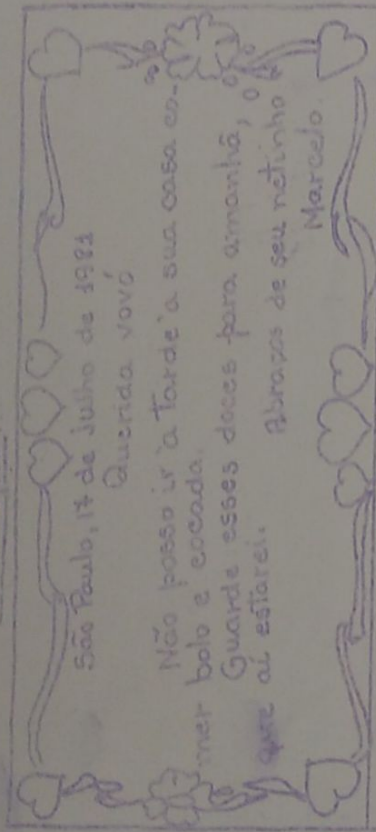 São Paulo, 17 de Julho de 1981
Querida vovó
Não posso ir à tarde à sua casa co-
mer bolo e cocada.
Guarde esses doces para amanhã,
que aí estarei.
Abraços de seu netinho
Marcelo.